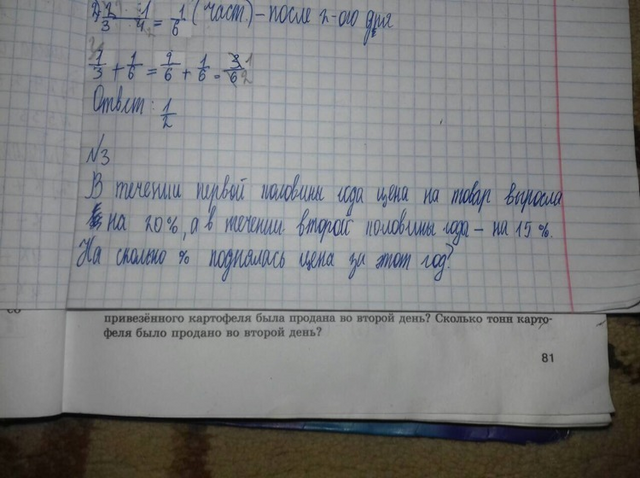 2/3 · 1/4 = 1/6 (част.) – после 2-ого дня
1/3 + 1/6 = 2/6 + 1/6 = 3/6
Ответ: 1/2
№3
В течении первой половины года цена на товар выросла
на 20%, а в течении второй половины года – на 15%.
На сколько % поднялась цена за этот год?
привезённого картофеля была продана во второй день? Сколько тонн карто-
феля было продано во второй день?
81